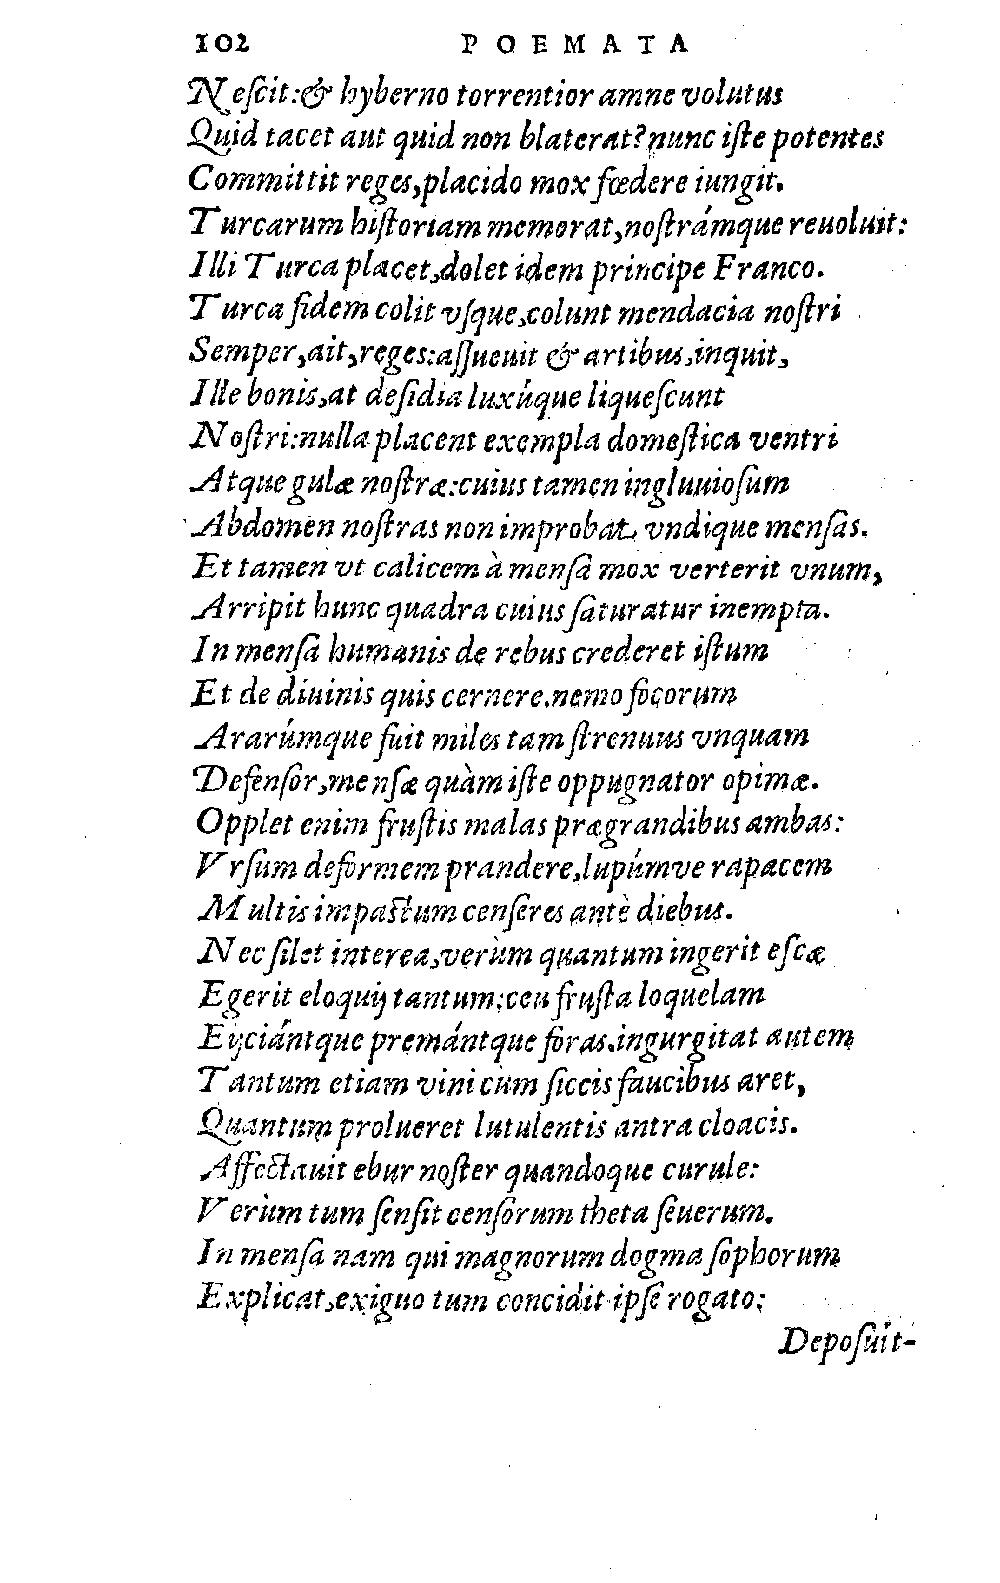 102 POEMATA
Neſcit:& hyberno torrentior amne volutus
Quid tacet aut quid non blaterat? nunc iſte potentes
Committit reges, placido mox fœdere iungit.
Turcarum hiſtoriam memorat, noſtrámque reuoluit:
Illi Turca placet, dolet idem principe Franco.
Turca fidem colit vſque, colunt mendacia noſtri
Semper, ait, reges: aſſueuit & artibus, inquit,
Ille bonis, at deſidia luxúque liqueſcunt
Noſtri: nulla placent exempla domeſtica ventri
Atque gulæ noſtræ: cuius tamen ingluuioſum
Abdomen noſtras non improbat vndique menſas.
Et tamen vt calicem à menſa mox verterit vnum,
Arripit hunc quadra cuius ſaturatur inempta.
In menſa humanis de rebus crederet iſtum
Et de diuinis quis cernere. nemo focorum
Ararúmque fuit miles tam ſtrenuus vnquam
Defenſor, menſæ quàm iſte oppugnator opimæ.
Opplet enim fruſtis malas prægrandibus ambas:
Vrſum deformem prandere, lupúmve rapacem
Multis impaſtum cenſeres antè diebus.
Nec ſilet interea, verùm quantum ingerit eſcæ
Egerit eloquij tantum: ceu fruſta loquelam
Eijciántque premántque foras. ingurgitat autem
Tantum etiam vini cùm ſiccis faucibus aret,
Quantum prolueret lutulentis antra cloacis.
Affectauit ebur noſter quandoque curule:
Verùm tum ſenſit cenſorum theta ſeuerum.
In menſa nam qui magnorum dogma ſophorum
Explicat, exiguo tum concidit ipſe rogato:
Depoſuit-